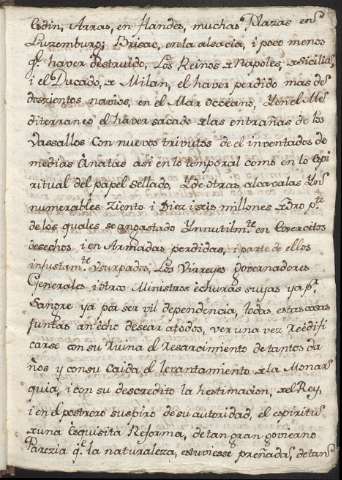 Esdin, Arras, en flandes, muchas Plazas en
Luzemburg; Brisac, en la alsacia, i poco menos
q.e haver destruido, Los Reinos de Napoles, de Sicilia,
i el Ducado, de Milan, el haver perdido mas de
doscientos navios, en el Mar occeano, Y en el Me
diterraneo el haver sacado de las entrañas de los
Vassallos Con nuevos tributos de el inventados de
medias Anatas asi en lo temporal como en lo espi
ritual del papel sellado, Y de otras alcavalas Yn
numerables Ziento i Diez i seis millones de oro
de los quales se an gastado Ynnutilm.te en Exercitos
desechos i en Armadas perdidas, i parte de ellos
injustam.te Usurpados, Los Virreyes Governadores
Generales i otros Ministros echuras suyas ya p.r
Sangre ya por ser vil dependencia, todas estas cosas
juntas an echo desear a todos, ver una vez Reedifi
carse con su Ruina el Resarcimiento de tantos da
ños y con su Caida, el levantamiento de la Monar
quia, i con su descredito la hestimacion, del Rey,
i en el postrero suspiro de su autoridad, el espiritu
de una exquisita Reforma, de tan gran govierno
Parezia q.e la naturaleza, estuviesse preñada, de tan